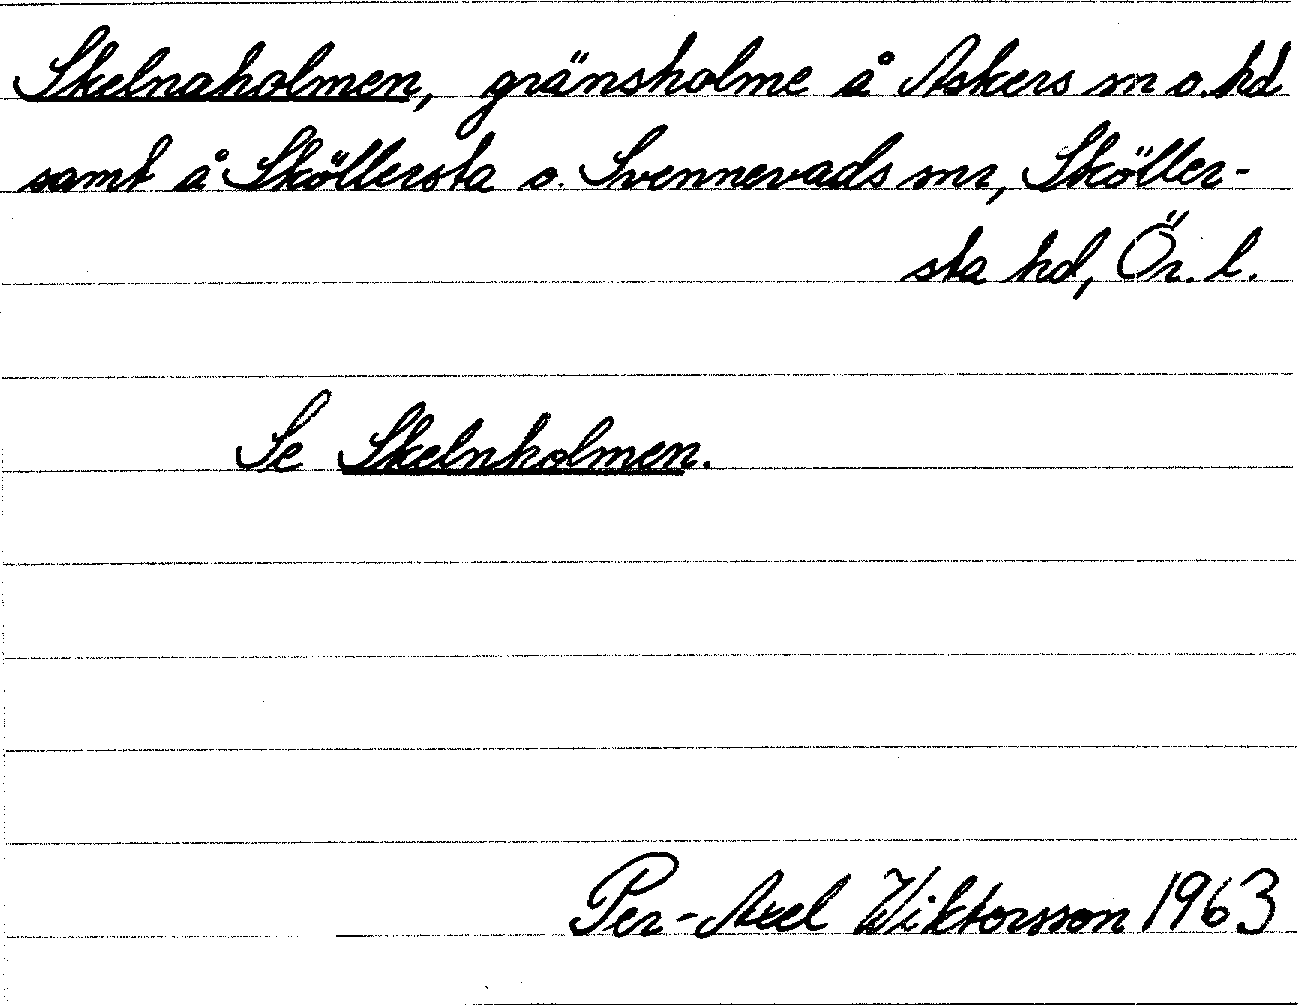 Skelnaholmen, gränsholme å Askers sn o. hd
samt å Sköllersta o. Svennevads snr, Sköller-
sta hd, Ör. l.
Se Skelnholmen.
Per-Axel Wiktorsson 1963